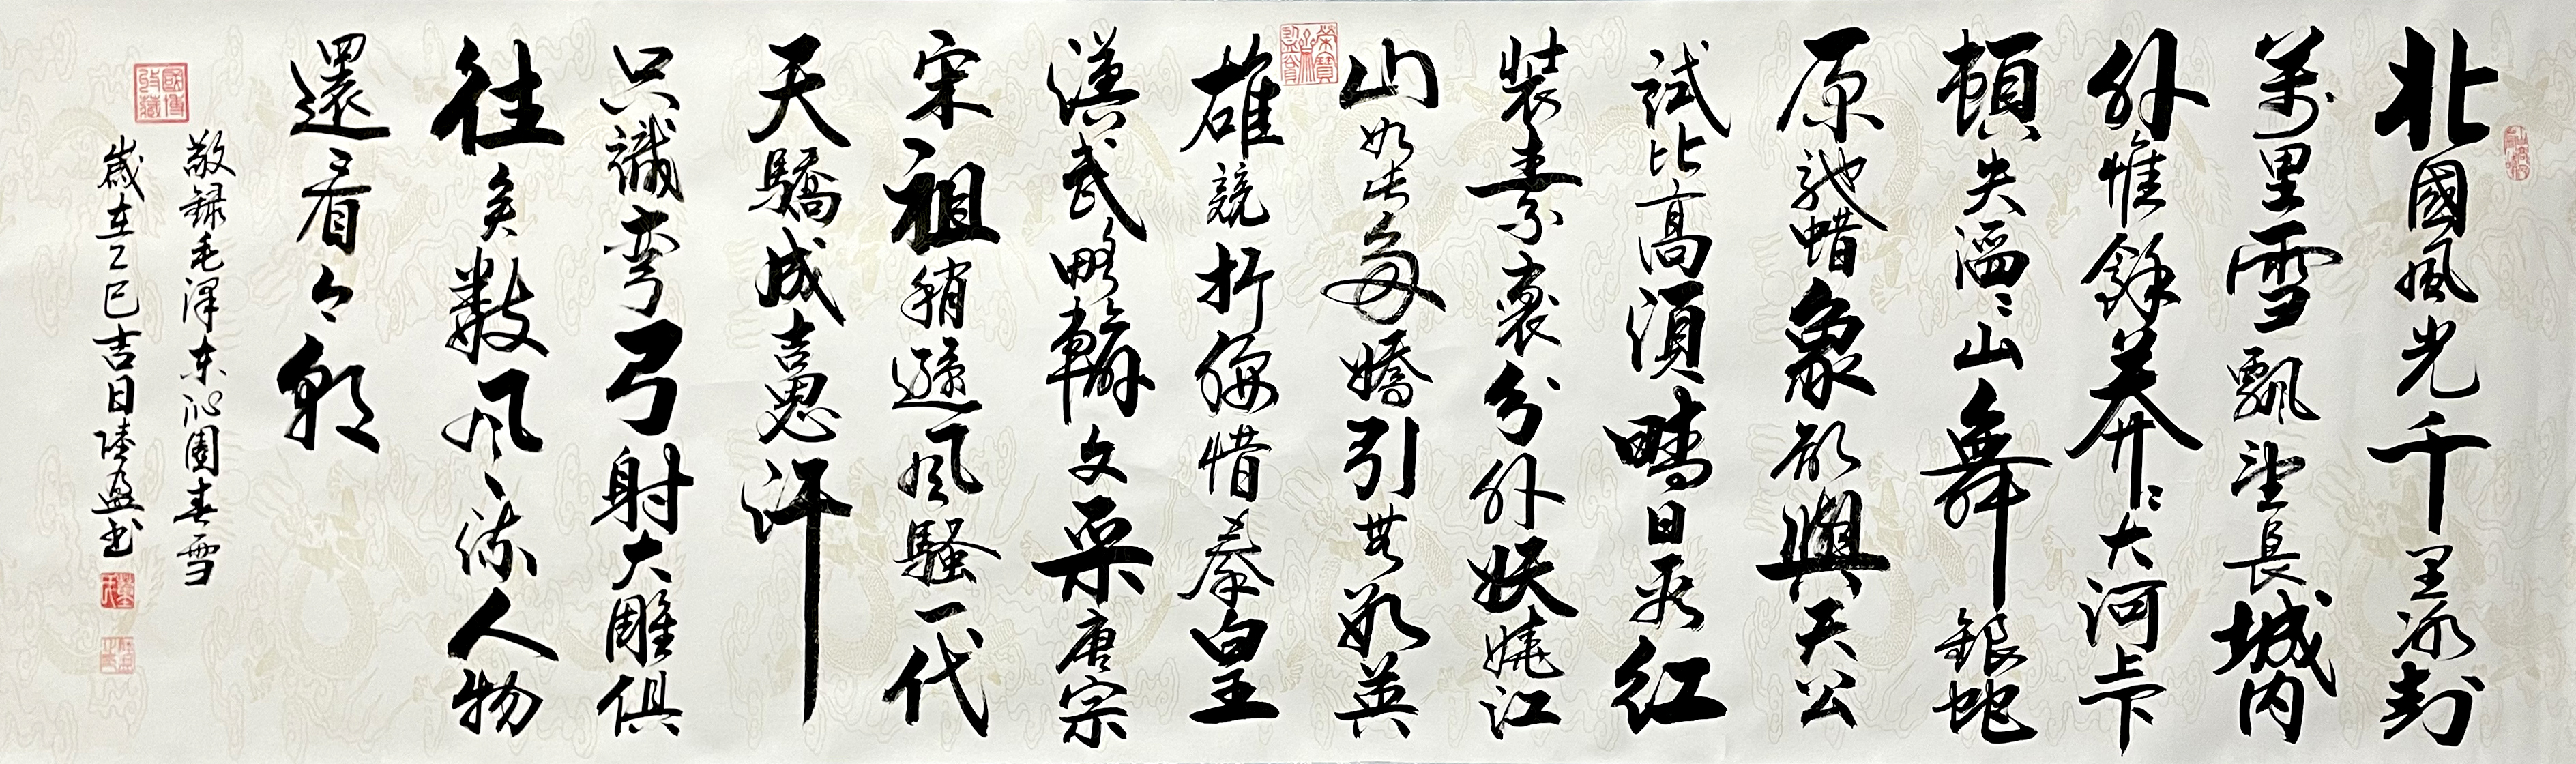 北國風光千里冰封
萬里雪飄望長城内
外惟餘莽〻大河上下
頓失滔〻山舞銀蛇
原馳蜡象欲與天公
試比高須晴日看紅
裝素裹分外妖嬈江
山如此多嬌引無數英
雄競折腰惜秦皇
漢武略輸文采唐宗
宋祖稍遜風騷一代
天驕成吉思汗
只識弯弓射大雕俱
往矣數風流人物
還看今朝
敬録毛澤东沁園春雪
歲在乙巳吉日陸盈书
國博收藏